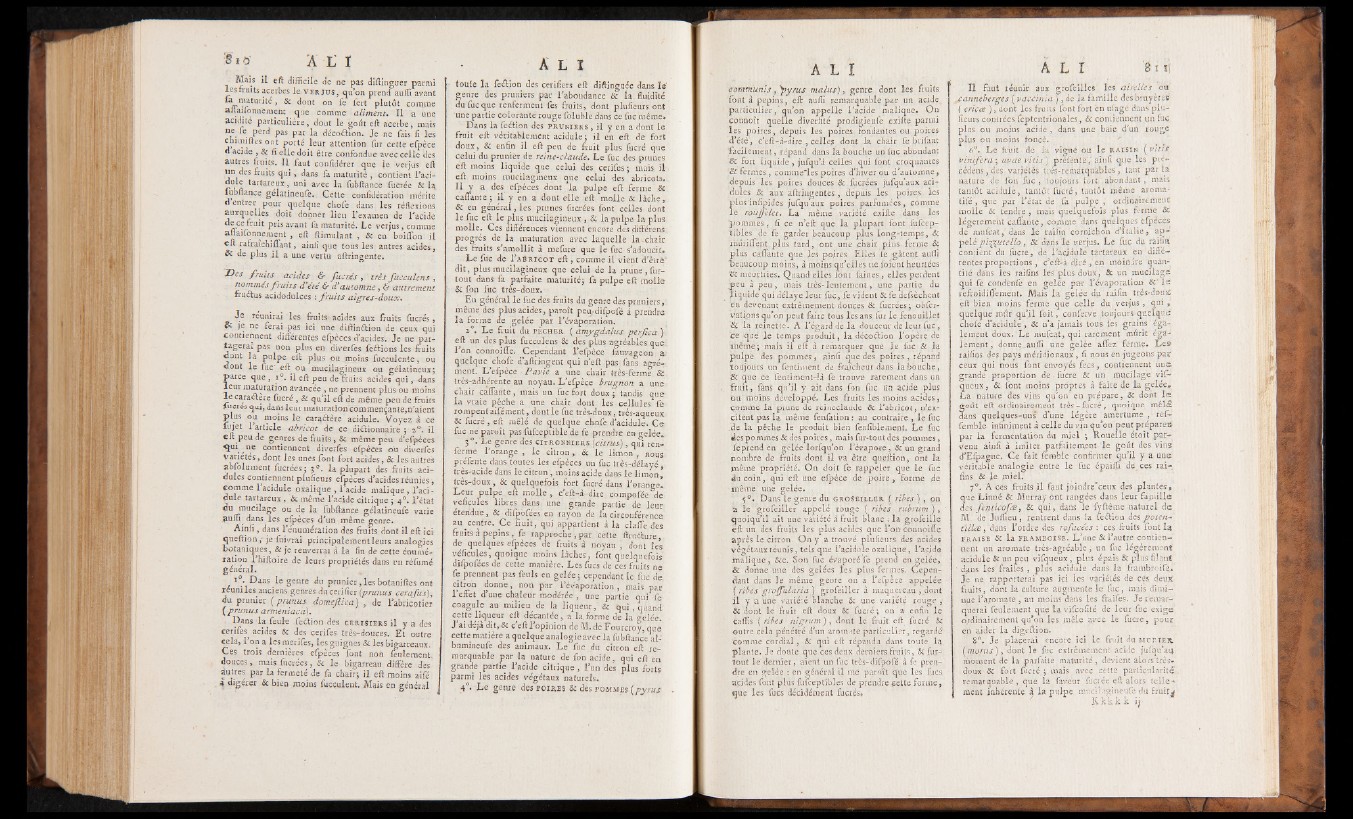 810 ALI
Mais il est difficile de ne pas distinguer parmi
les fruits acerbes le VERJUS, qu'on prend aussi avant
sa maturité, & dont on se sert plutôt comme
assaisonnement que comme aliment. Il a une
acidité particulière, dont le goût est acerbe, mais
ne se perd pas par la décoction. Je ne sais si les
chimistes ont porté leur attention sur cette espèce
d'acide, & si elle doit être confondue avec celle des
autres fruits. Il faut considérer que le verjus est
un des fruits qui, dans sa maturité, contient l'aci-
dule tartareux, uni avec la substance sucrée & la
substance gélatineuse. Cette considération mérite
d'entrer pour quelque chose dans les réflexions
auxquelles doit donner lieu l'examen de l'acide
de ce fruit pris avant sa maturité. Le verjus, comme
assaisonnement, est stimulant, & en boisson il
est rafraîchissant, ainsi que tous les autres acides,
& de plus il a une vertu astringente.
Des fruits acides & sucrés, très succulens,
nommés fruits d'été & d'automne, & autrement
fructus acidodulces : fruits aigres-doux.
Je réunirai les fruits acides aux fruits sucrés,
& je ne ferai pas ici une distinction de ceux qui
contiennent différentes espèces d'acides. Je ne par-
tagerai pas non plus en diverses sections les fruits
dont la pulpe est plus ou moins succulente, ou
dont le suc est ou mucilagineux ou gélatineux;
parce que, 1°. il est peu de fruits acides qui, dans
leur maturation avancée, ne prennent plus ou moins
le caractère sucré, & qu'il est de même peu de fruits
sucrés qui, dans leur maturation commençante, n'aient
plus ou moins le caractère acidule. Voyez à ce
sujet l'article abricot de ce dictionnaire; 2°. il
est peu de genres de fruits, & même peu d'espèces
qui ne contiennent diverses espèces ou diverses
variétés, dont les unes sont fort acides, & les autres
absolument sucrées; 3°. la plupart des fruits aci-
dules contiennent plusieurs espèces d'acides réunies,
comme l'acidule oxalique, l'acide malique, l'aci-
dule tartareux, & même l'acide citrique; 4°. l'état
du mucilage ou de la substance gélatineuse varie
aussi dans les espèces d'un même genre.
Ainsi, dans l'énumération des fruits dont il est ici
question, je suivrai principalement leurs analogies
botaniques, & je renverrai à la fin de cette énumé-
ration l'histoire de leurs propriétés dans un résumé
général.
1°. Dans le genre du prunier, les botanistes ont
réuni les anciens genres du cerisier (prunus cerasus),
du prunier (prunus domestica), de l'abricotier
(prunus armeniaca).
Dans la seule section des CERISIERS il y a des
cerises acides & des cerises très-douces. Et outre
cela, l'on a les merises, les guignes & les bigarreaux.
Ces trois dernières espèces sont non seulement
douces, mais sucrées, & le bigarreau diffère des
autres par la fermeté de sa chair; il est moins aisé
à digérer & bien moins succulent. Mais en général
ALI
toute la section des cerisiers est distinguée dans le
genre des pruniers par l'abondance & la fluidité
du suc que renferment ses fruits, dont plusieurs ont
une partie colorante rouge soluble dans ce suc même.
Dans la section des PRUNIERS, il y en a dont le
fruit est véritablement acidule; il en est de fort
doux, & enfin il est peu de fruit plus sucré que
celui du prunier de reine-claude. Le suc des prunes
est moins liquide que celui des cerises; mais il
est moins mucilagineux que celui des abricots.
Il y a des espèces dont la pulpe est ferme &
cassante; il y en a dont elle est molle & lâche,
& en général, les prunes sucrées sont celles dont
le suc est le plus mucilagineux, & la pulpe la plus
molle. Ces différences viennent encore des différens
progrès de la maturation avec laquelle la chair
des fruits s'amollit à mesure que le suc s'adoucit.
Le suc de l'ABRICOT est, comme il vient d'être
dit, plus mucilagineux que celui de la prune, sur-
tout dans sa parfaite maturité; sa pulpe est molle
& son suc très-doux.
En général le suc des fruits du genre des pruniers,
même des plus acides, paroît peu disposé à prendre
la forme de gelée par l'évaporation.
2°. Le fruit du PÊCHER (amygdalus persica)
est un des plus succulens & des plus agréables que
l'on connoisse. Cependant l'espèce sauvageon a
quelque chose d'astringent qui n'est pas sans agré-
ment. L'espèce Pavie a une chair très-ferme &
très-adhérente au noyau. L'espèce brugnon a une
chair cassante, mais un suc fort doux; tandis que
la vraie pêche a une chair dont les cellules se
rompent aisément, dont le suc très-doux, très-aqueux
& sucré, est mêlé de quelque chose d'acidule. Ce
suc ne paroît pas susceptible de se prendre en gelée.
3°. Le genre des CITRONNIERS (citrus), qui ren-
ferme l'orange, le citron, & le limon, nous
présente dans toutes les espèces un suc très-délayé,
très-acide dans le citron, moins acide dans le limon,
très-doux, & quelquefois fort sucré dans l'orange.
Leur pulpe est molle, c'est-à-dire composée de
vésicules libres dans une grande partie de leur
étendue, & disposées en rayon de la circonférence
au centre. Ce fruit, qui appartient à la classe des
fruits à pepins, se rapproche, par cette structure,
de quelques espèces de fruits à noyau, dont les
vésicules, quoique moins lâches, sont quelquefois
disposées de cette manière. Les sucs de ces fruits ne
se prennent pas seuls en gelée; cependant le suc de
citron donne, non par l'évaporation, mais par
l'effet d'une chaleur modérée, une partie qui se
coagule au milieu de la liqueur, & qui, quand
cette liqueur est décantée, a la forme de la gelée.
J'ai déjà dit, & c'est l'opinion de M. de Fourcroy, que
cette matière a quelque analogie avec la substance al-
bumineuse des animaux. Le suc du citron est re-
marquable par la nature de son acide, qui est en
grande partie l'acide citrique, l'un des plus forts
parmi les acides végétaux naturels.
4°. Le genre des POIRES & des POMMES (pyrus
ALI
communis, pyrus malus), genre dont les fruits
sont à pepins, est aussi remarquable par un acide
particulier, qu'on appelle l'acide malique. On
connoît quelle diversité prodigieuse existe parmi
les poires, depuis les poires fondantes ou poires
d'été, c'est-à-dire, celles dont la chair se brisant
facilement, répand dans la bouche un suc abondant
& fort liquide, jusqu'à celles qui sont croquantes
& fermes, comme les poires d'hiver ou d'automne,
depuis les poires douces & sucrées jusqu'aux aci-
dules & aux astringentes, depuis les poires les
plus insipides jusqu'aux poires parfumées, comme
le rousselet. La même variété existe dans les
pommes, si ce n'est que la plupart sont suscep-
tibles de se garder beaucoup plus long-temps, &
mûrissent plus tard, ont une chair plus ferme &
plus cassante que les poires. Elles se gâtent aussi
beaucoup moins, à moins qu'elles ne soient heurtées
& meurtries. Quand elles sont saines, elles perdent
peu à peu, mais très-lentement, une partie du
liquide qui délaye leur suc, se vident & se dessèchent
en devenant extrêmement douces & sucrées; obser-
vations qu'on peut faire tous les ans sur le fenouillet
& la reinette. A l'égard de la douceur de leur suc,
ce que le temps produit, la décoction l'opère de
même; mais il est à remarquer que le suc & la
pulpe des pommes, ainsi que des poires, répand
toujours un sentiment de fraîcheur dans la bouche,
& que ce sentiment-là se trouve rarement dans un
fruit, sans qu'il y ait dans son suc un acide plus
ou moins développé. Les fruits les moins acides,
comme la prune de reine-claude & l'abricot, n'ex-
citent pas la même sensation: au contraire, le suc
de la pêche le produit bien sensiblement. Le suc
des pommes & des poires, mais sur-tout des pommes,
se prend en gelée lorsqu'on l'évapore, & un grand
nombre de fruits dont il va être question, ont la
même propriété. On doit se rappeler que le suc
du coin, qui est une espèce de poire, forme de
même une gelée.
5°. Dans le genre du GROSEILLER (ribes), on
a le groseiller appelé rouge (ribes rubrum),
quoiqu'il ait une variété à fruit blanc. La groseille
est un des fruits les plus acides que l'on connoisse
après le citron. On y a trouvé plusieurs des acides
végétaux réunis, tels que l'acidule oxalique, l'acide
malique, &c. Son suc évaporé se prend en gelée,
& donne une des gelées les plus fermes. Cepen-
dant dans le même genre on a l'espèce appelée
(ribes grossularia) groseiller à maquereau, dont
il y a une variété blanche & une variété rouge,
& dont le fruit est doux & sucré; on a enfin le
cassis (ribes nigrum), dont le fruit est sucré &
outre cela pénétré d'un aromate particulier, regardé
comme cordial, & qui est répandu dans toute la
plante. Je doute que ces deux derniers fruits, & sur-
tout le dernier, aient un suc très-disposé à se pren-
dre en gelée: en général il me paroît que les sucs
acides sont plus susceptibles de prendre cette forme,
que les sucs décidément sucrés.
ALI 811
Il faut réunir aux groseilles les airelles ou
canneberges (vaccinia), de la famille des bruyères
(ericæ), dont les fruits sont fort en usage dans plu-
sieurs contrées septentrionales, & contiennent un suc
plus ou moins acide, dans une baie d'un rouge
plus ou moins foncé.
6°. Le fruit de la vigne ou le RAISIN (vitis
vinifera; uvae vitis) présente, ainsi que les pré-
cédens, des variétés très-remarquables, tant par la
nature de son suc, toujours fort abondant, mais
tantôt acidule, tantôt sucré, tantôt même aroma-
tisé, que par l'état de sa pulpe, ordinairement
molle & tendre, mais quelquefois plus ferme &
légèrement cassante, comme dans quelques espèces
de muscat, dans le raisin cornichon d'Italie, ap-
pelé pizzutello, & dans le verjus. Le suc du raisin
contient du sucre, de l'acidule tartareux en diffé-
rentes proportions, c'est-à-dire, en moindre quan-
tité dans les raisins les plus doux, & un mucilage
qui se condense en gelée par l'évaporation & le
refroidissement. Mais la gelée du raisin très-doux
est bien moins ferme que celle du verjus, qui,
quelque mûr qu'il soit, conserve toujours quelque
chose d'acidule, & n'a jamais tous ses grains éga-
lement doux. Le muscat, qui rarement mûrit éga-
lement, donne aussi une gelée assez ferme. Les
raisins des pays méridionaux, si nous en jugeons par
ceux qui nous sont envoyés secs, contiennent une
grande proportion de sucre & un mucilage vis-
queux, & sont moins propres à faire de la gelée.
La nature des vins qu'on en prépare, & dont le
goût est ordinairement très-sucré, quoique mêlé
dans quelques-uns d'une légère amertume, res-
semble infiniment à celle du vin qu'on peut préparer
par la fermentation du miel; Rouelle étoit par-
venu ainsi à imiter parfaitement le goût des vins
d'Espagne. Ce fait semble confirmer qu'il y a une
véritable analogie entre le suc épaissi de ces rai-
sins & le miel.
7°. A ces fruits il faut joindre ceux des plantes,
que Linné & Murray ont rangées dans leur famille
des senticosæ, & qui, dans le système naturel de
M. de Jussieu, rentrent dans la section des poten-
tillæ, dans l'ordre des rosacées: ces fruits sont la
FRAISE & la FRAMBOISE. L'une & l'autre contien-
nent un aromate très-agréable, un suc légèrement
acidule & un peu visqueux, plus épais & plus filant
dans les fraises, plus acidule dans la framboise.
Je ne rapporterai pas ici les variétés de ces deux
fruits, dont la culture augmente le suc, mais dimi-
nue l'aromate, au moins dans les fraises. Je remar-
querai seulement que la viscosité de leur suc exige
ordinairement qu'on les mêle avec le sucre, pour
en aider la digestion.
8°. Je placerai encore ici le fruit du MURIER
(morus), dont le suc extrêmement acide jusqu'au
moment de la parfaite maturité, devient alors très-
doux & fort sucré; mais avec cette particularité
remarquable, que la saveur sucrée est alors telle-
ment inhérente à la pulpe mucilagineuse du fruit,
Kkkkk ij